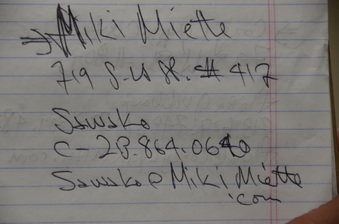 Miki Miette
719 S. # 417
Sawako
C-213.864.0640
Sawako@MikiMiette
.com